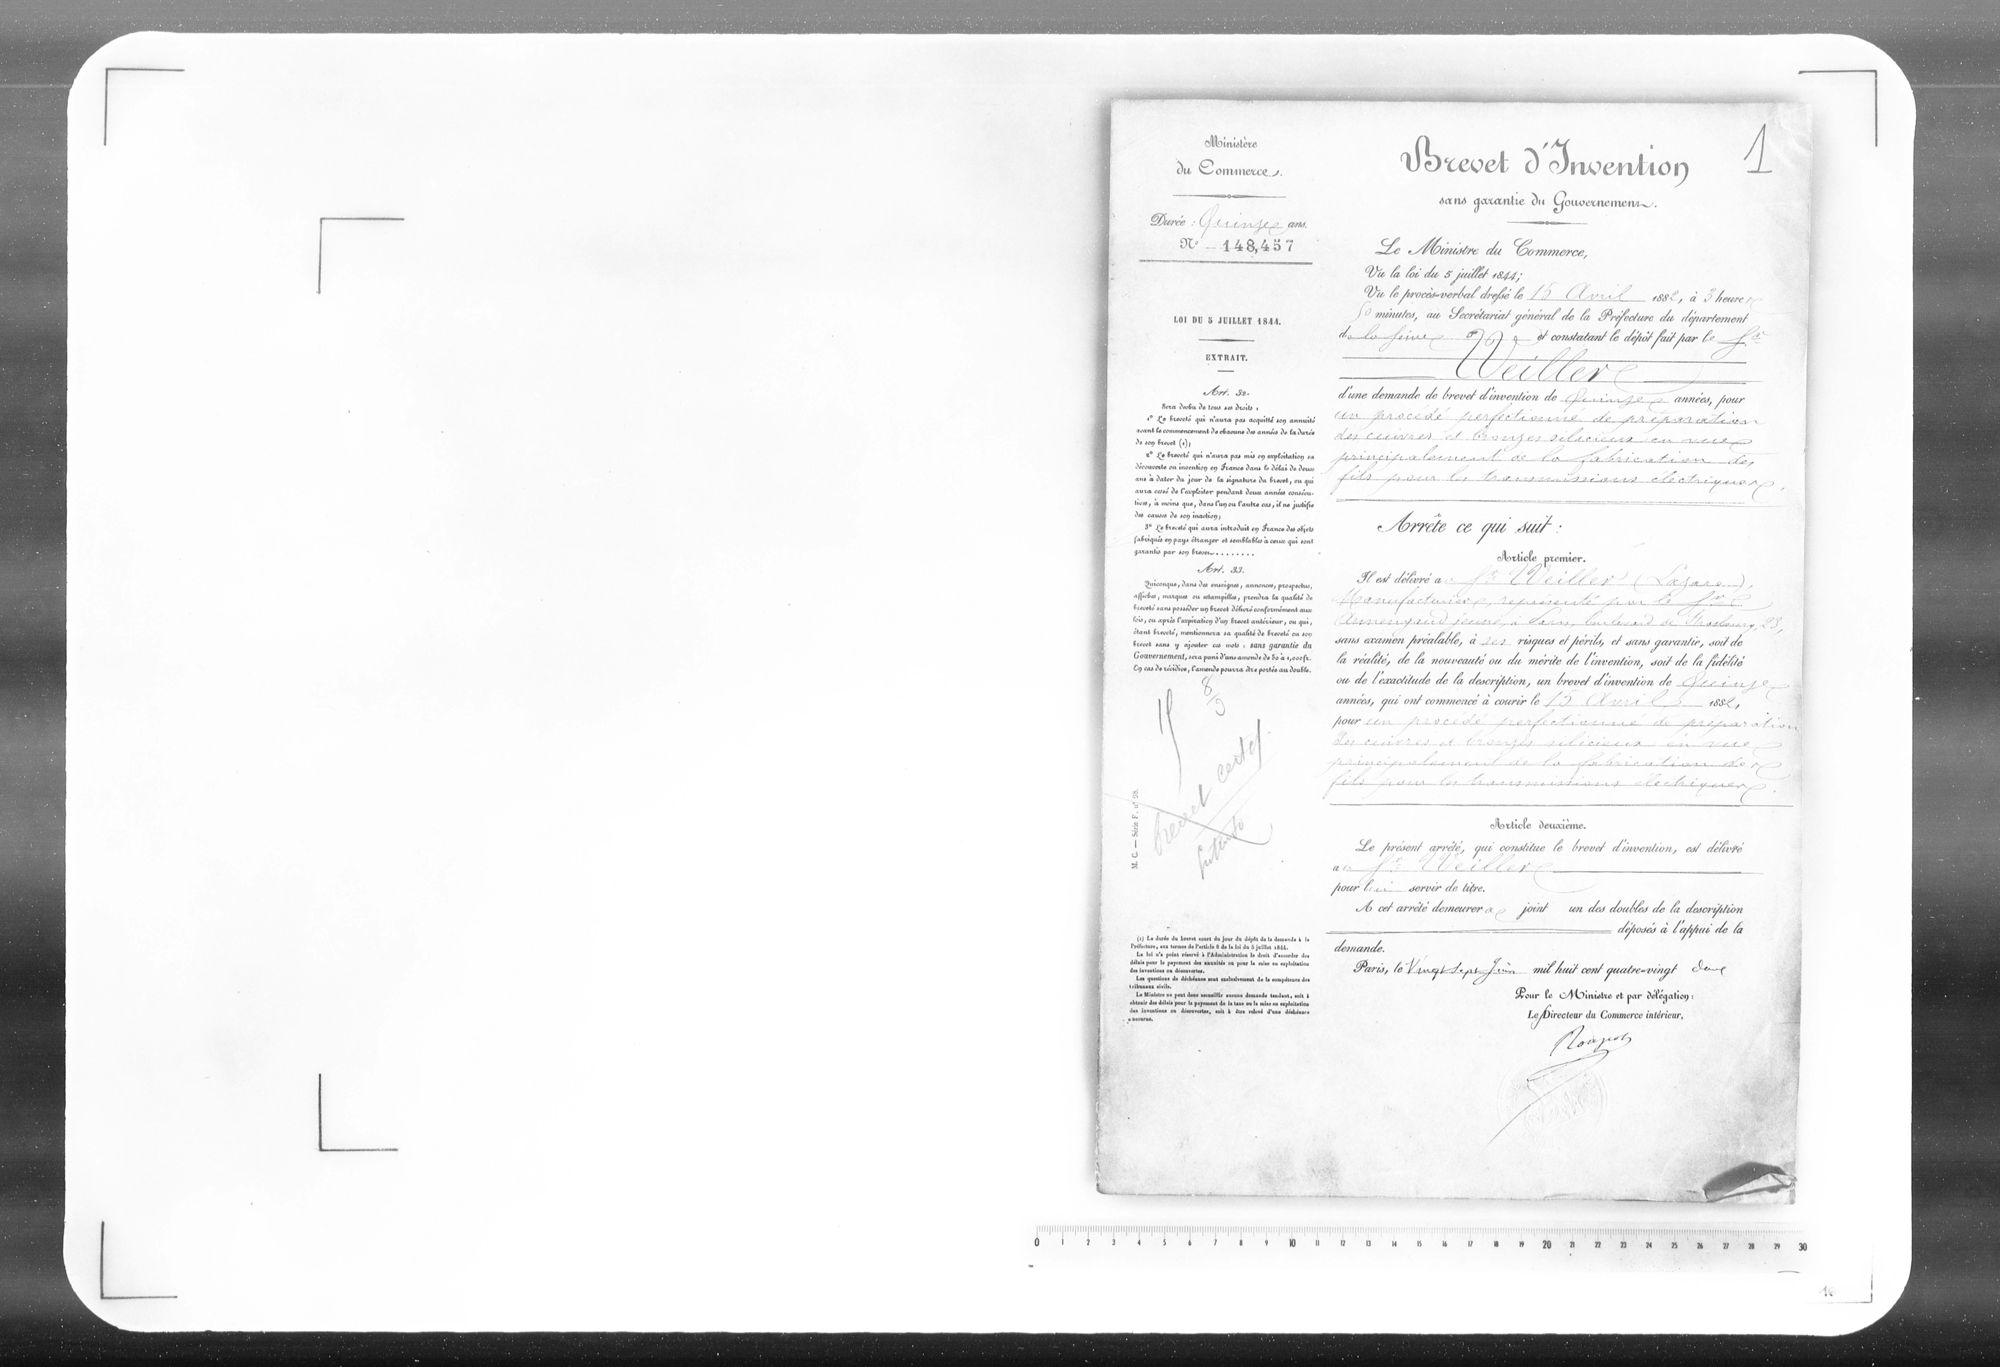 Ministère
du Commerce.
Durée : Quinze ans.
N° 148,457
LOI DU 5 JUILLET 1844.
EXTRAIT.
Art. 32.
Sera déchu de tous ses droits :
1° Le breveté qui n'aura pas acquitté son annuité
avant le commencement de chacune des années de la durée
de son brevet (1);
2° Le breveté qui n'aura pas mis en exploitation sa
découverte ou invention en France dans le délai de deux
ans à dater du jour de la signature du brevet, ou qui
aura cessé de l'exploiter pendant deux années consécu-
tives, à moins que, dans l'un ou l'autre cas, il ne justifie
des causes de son inaction;
3° Le breveté qui aura introduit en France des objets
fabriqués en pays étranger et semblables à ceux qui sont
garantis par son brevet........
Art. 33.
Quiconque, dans des enseignes, annonces, prospectus,
affiches, marques ou estampilles, prendra la qualité de
breveté sans posséder un brevet délivré conformément aux
lois, ou après l'expiration d'un brevet antérieur, ou qui,
étant breveté, mentionnera sa qualité de breveté ou son
brevet sans y ajouter ces mots : sans garantie du
Gouvernement, sera puni d'une amende de 50 à 1,000 fr.
En cas de récidive, l'amende pourra être portée au double.
brevet
M. C. — Série F, n° 98.
(1) La durée du brevet court du jour du dépôt de la demande à la
Préfecture, aux termes de l'article 8 de la loi du 5 juillet 1844.
La loi n'a point réservé à l'Administration le droit d'accorder des
délais pour le payement des annuités ou pour la mise en exploitation
des inventions ou découvertes.
Les questions de déchéance sont exclusivement de la compétence des
tribunaux civils.
Le Ministre ne peut donc accueillir aucune demande tendant, soit à
obtenir des délais pour le payement de la taxe ou la mise en exploitation
des inventions ou découvertes, soit à être relevé d'une déchéance
encourue.
1
Brevet d'Invention
sans garantie du Gouvernement.
Le Ministre du Commerce,
Vu la loi du 5 juillet 1844;
Vu le procès-verbal dressé le 15 Avril 1882, à 3 heures
50 minutes, au Secrétariat général de la Préfecture du département
de la Seine et constatant le dépôt fait par le Sr
Weiller
d'une demande de brevet d'invention de Quinze années, pour
un procédé perfectionné de préparation
des cuivres et bronzes silicieux en vue
principalement de la fabrication des
fils pour les transmissions électriques.
Arrête ce qui suit :
Article premier.
Il est délivré au Sr Weiller (Lazare),
Manufacturier, représenté par le Sr
Armengaud jeune, à Paris, boulevard de Strasbourg, 23,
sans examen préalable, à ses risques et périls, et sans garantie, soit de
la réalité, de la nouveauté ou du mérite de l'invention, soit de la fidélité
ou de l'exactitude de la description, un brevet d'invention de Quinze
années, qui ont commencé à courir le 15 Avril 1882,
pour un procédé perfectionné de préparation
des cuivres et bronzes silicieux en vue
principalement de la fabrication des
fils pour les transmissions électriques.
Article deuxième.
Le présent arrêté, qui constitue le brevet d'invention, est délivré
au Sr Weiller
pour lui servir de titre.
A cet arrêté demeurera joint un des doubles de la description
déposés à l'appui de la
demande.
Paris, le Vingt sept Juin mil huit cent quatre-vingt deux
Pour le Ministre et par délégation :
Le Directeur du Commerce intérieur,
0 1 2 3 4 5 6 7 8 9 10 11 12 13 14 15 16 17 18 19 20 21 22 23 24 25 26 27 28 29 30